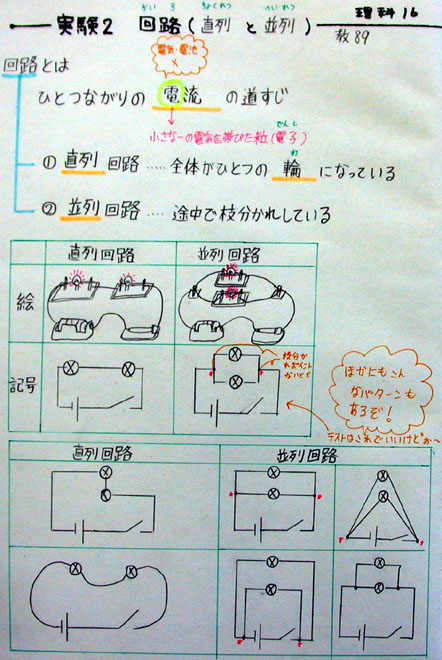 理科 16
かいろ ちょくれつ へいれつ
実験2 回路(直列と並列)
教89
電気・電池
×
回路とは
ひとつながりの 電流 の道すじ
小さな一の電気を帯びた粒(電子)
でんし
わ
① 直列回路 ..... 全体がひとつの 輪 になっている
② 並列回路 .... 途中で枝分かれしている
直列回路 並列回路
絵
記号
枝分か
れポイント
ほかにもこん
なパターンも
あるぞ!
テストはこれでいいけどお〜
直列回路 並列回路